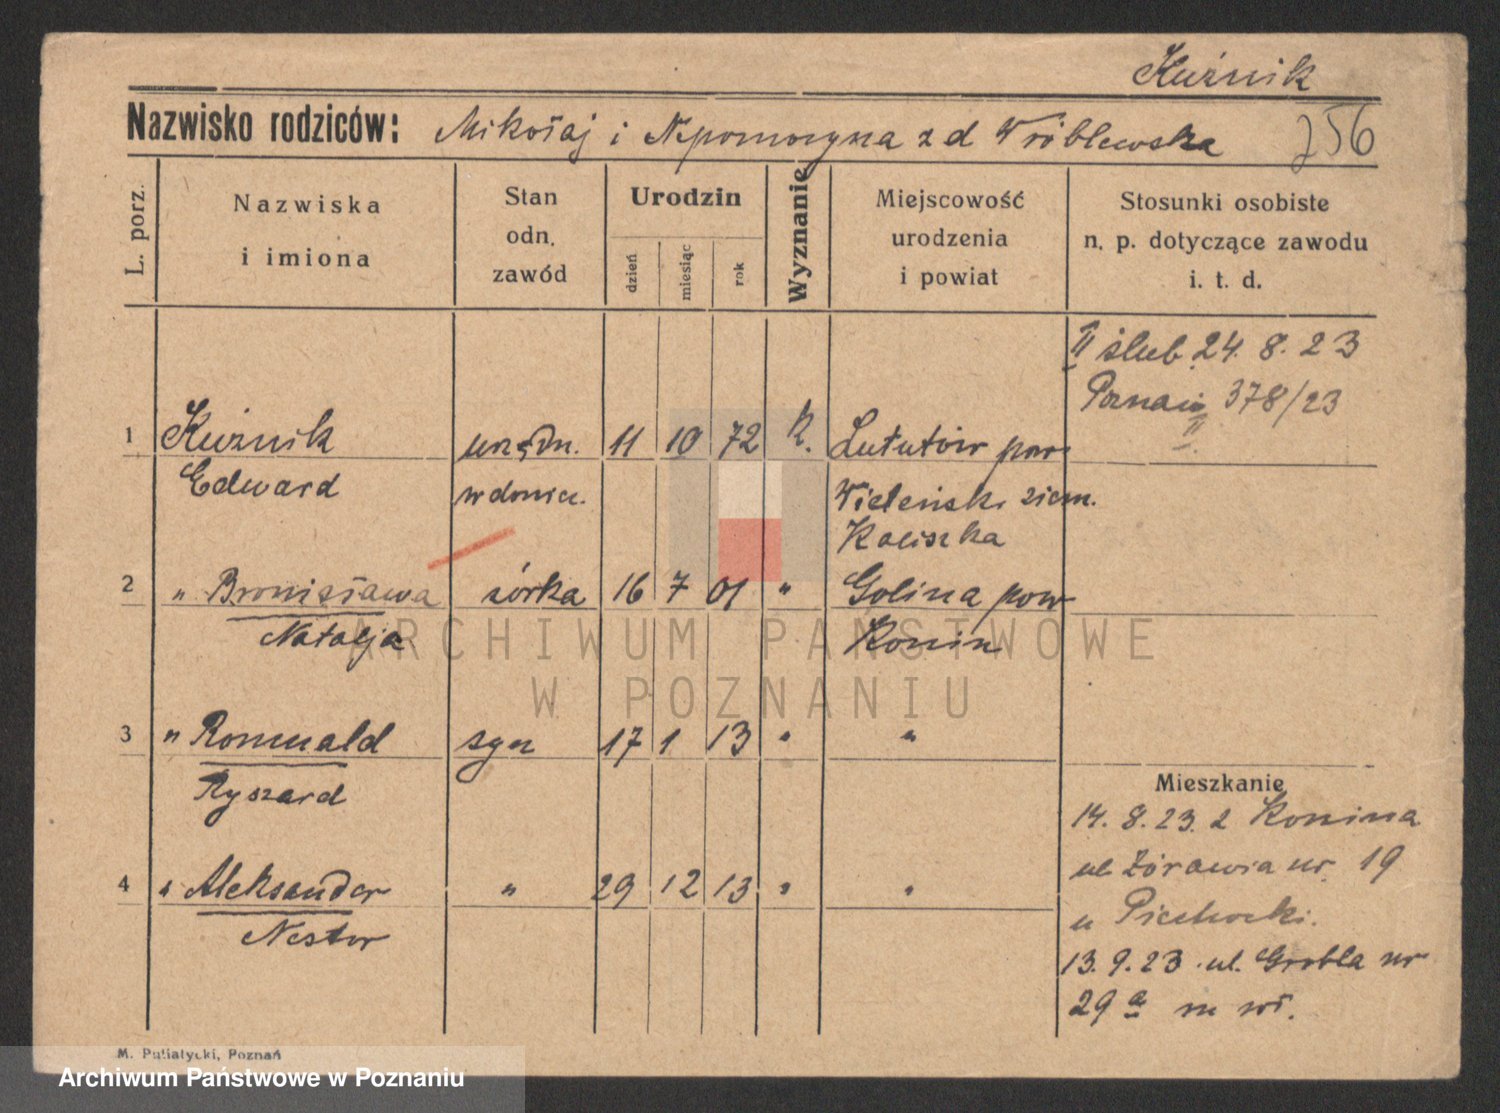 Kuźnik
Nazwisko rodziców: Mikołaj i Nepomocyna z d Wróblewska 256
L. porz.
Nazwiska i imiona
Stan odn. zawód
Urodzin
dzień miesiąc rok
Wyznanie
Miejscowość urodzenia i powiat
Stosunki osobiste n. p. dotyczące zawodu i. t. d.
II ślub 24. 8. 23
Poznań 378/23
II
1 Kuźnik urzędn. 11 10 72 k. Lututów pow
Edward wdowiec. Wieluński ziem.
Kaliszka
2 " Bronisława córka 16 7 01 " Golina pow
Natalja Konin
ARCHIWUM PAŃSTWOWE
W POZNANIU
3 " Romuald syn 17 1 13 " "
Ryszard
Mieszkanie
14. 8. 23 z Konina
ul Żórawia nr. 19
u Piechocki.
4 " Aleksander " 29 12 13 " "
Nestor
13. 9. 23 ul. Grobla nr
29 a m wł.
M. Putiatycki, Poznań
Archiwum Państwowe w Poznaniu